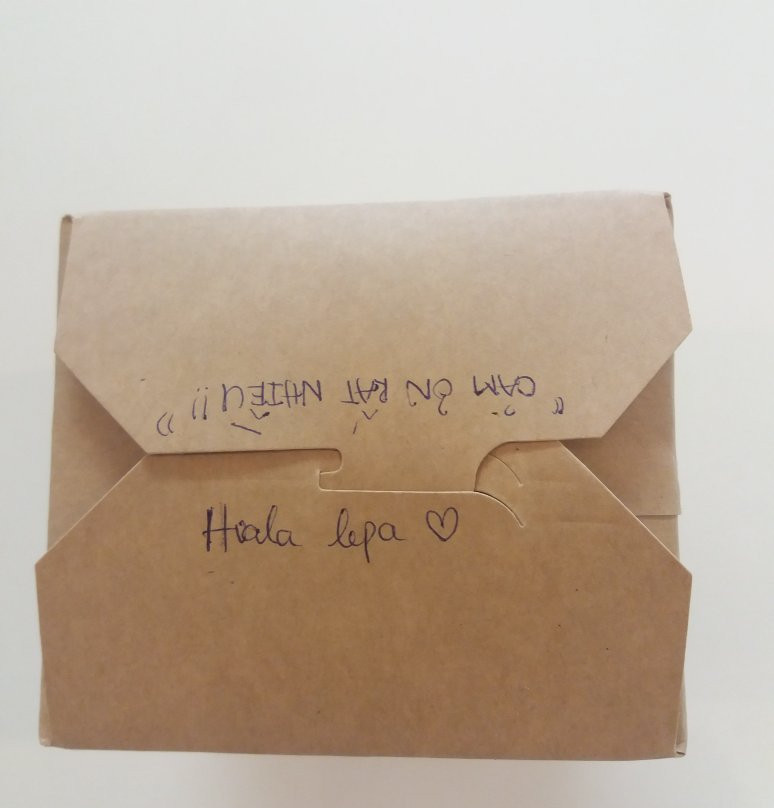 "CẢM ƠN RẤT NHIỀU!!"
Hvala lepa ♡